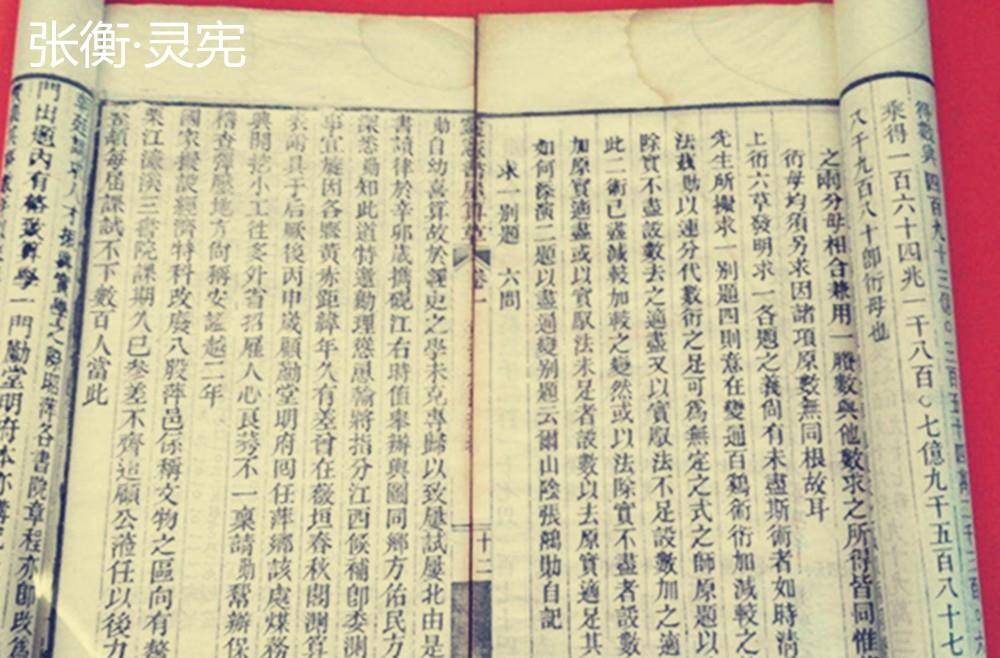 张衡·灵宪
乘得一百六十四兆一千八百〇七億九千五百八十七
八千九百八十卽術母也
之兩分母相合兼用一謄數與他數求之所得皆同惟
術母均須另求因諸項原數無同根故耳
上術六草發明求一各題之義尚有未盡斯術者如時清
先生所擬求一別題四則意在變通百鷄術術加減較之
法蓺勛以速分代數術之足可爲無定之式之師原題以
除實不盡設數去之適盡又以實馭法不足設數加之適
此二術已盡減較加較之變然或以法除實不盡者設數
加原實適盡或以實馭法未足者設數以去原實適足其
如何除演二題以盡通變別題云爾山陰張鷁勛自記
求一別題 六問
卷一
十二
動自幼喜算故於課史之學未克專歸以致屢試屢北由是
書讀律於辛卯歲攜硯江右時値舉辦輿圖同鄉方佑民方
深悉勛知此道特邀勷理慫恿翰將指分江西候補卽委測
事宜旋因各縣黃赤距緯年久有差曾在薇垣春秋閣測算
於丙申歲顧勷堂明府囘任萍鄉該處煤務
興開挖小工往多外省招雇人心良莠不一稟請勛幫辦保
稽查彈壓地方向稱安謐越二年
國家擬設經濟特科改廢八股萍邑係稱文物之區向有鰲
江濂溪三書院課期久已參差不齊迨顧公涖任以後九
每屆課試不下數百人當此
門出題內有籌筭算學一門勷堂明府本亦講